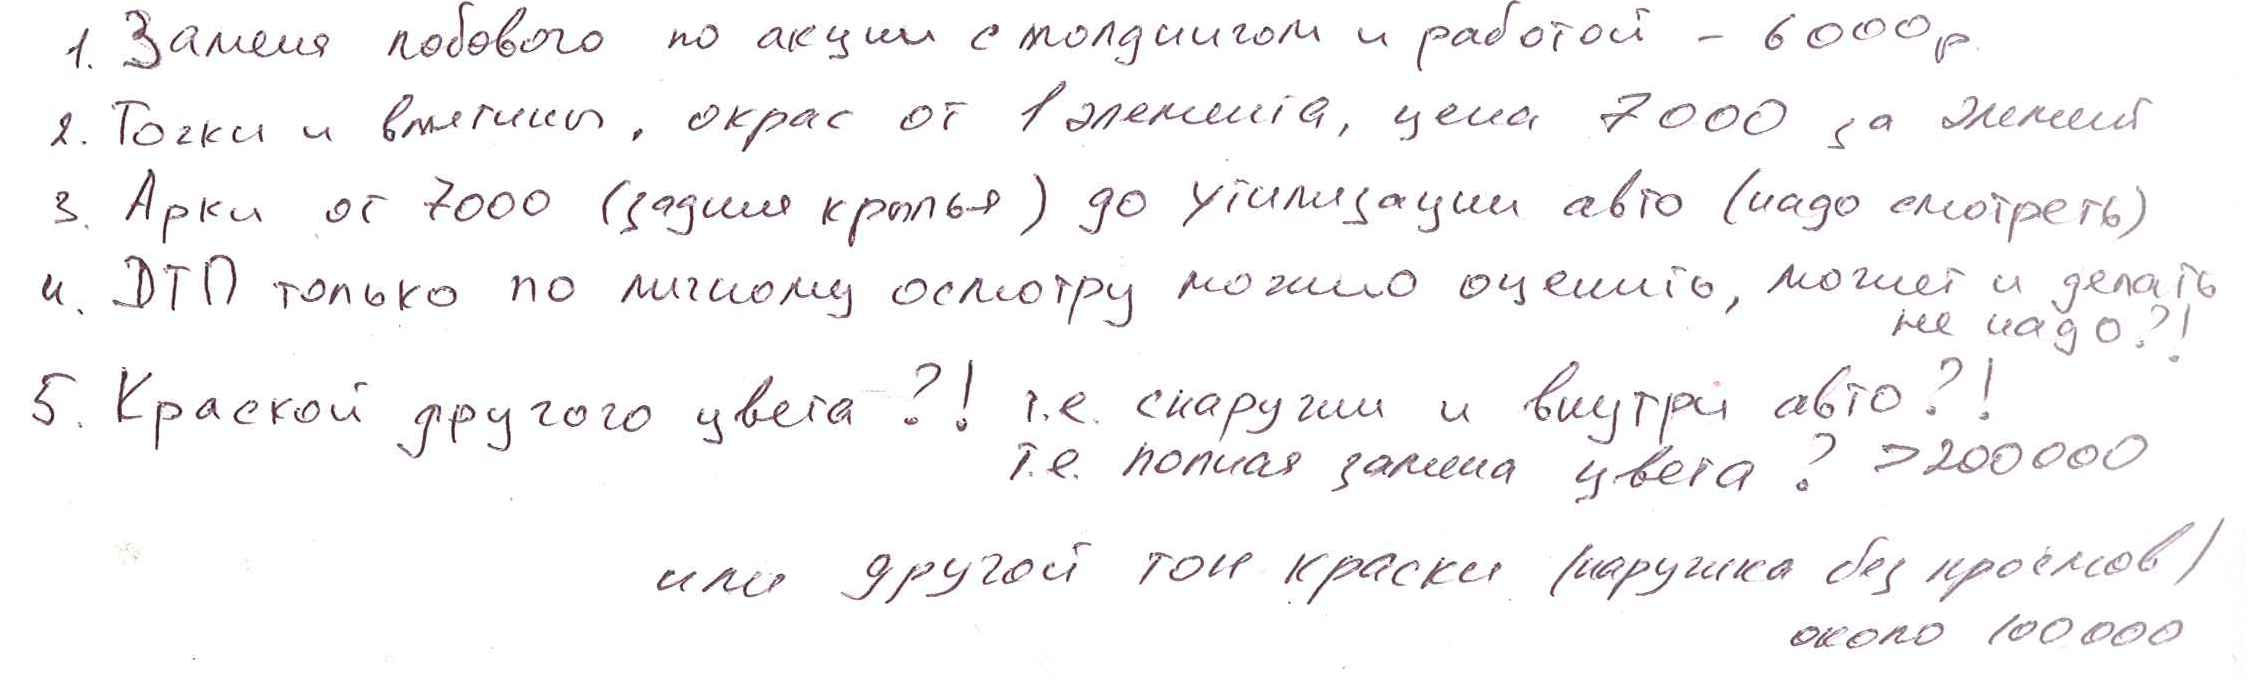 1. Замена лобового по акции с молдингом и работой - 6000р.
2. Точки и вмятины, окрас от 1 элемента, цена 7000 за элемент
3. Арки от 7000 (задния крылья) до утилизации авто (надо смотреть)
4. ДТП только по личному осмотру можно оценить, может и делать
не надо?!
5. Краской другого цвета ?! т.е. снаружи и внутри авто?!
т.е. полная замена цвета? >200000
или другой тон краски (наружка без проёмов)
около 100000